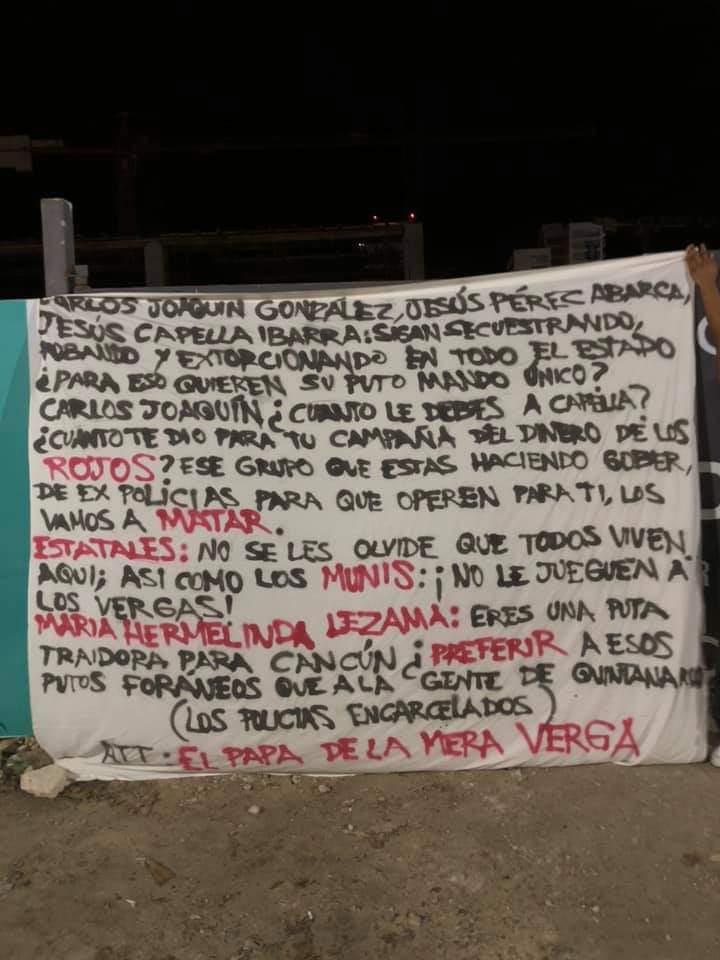 CARLOS JOAQUIN GONZÁLEZ, JESÚS PÉREZ ABARCA,
JESÚS CAPELLA IBARRA: SIGAN SECUESTRANDO,
ROBANDO Y EXTORCIONANDO EN TODO EL ESTADO
¿PARA ESO QUIEREN SU PUTO MANDO ÚNICO?
CARLOS JOAQUÍN ¿CUANTO LE DEBES A CAPELLA?
¿CUANTO TE DIO PARA TU CAMPAÑA DEL DINERO DE LOS
ROJOS? ESE GRUPO QUE ESTAS HACIENDO GOBIER,
DE EX POLICIAS PARA QUE OPEREN PARA TI, LOS
VAMOS A MATAR.
ESTATALES: NO SE LES OLVIDE QUE TODOS VIVEN
AQUI; ASI COMO LOS MUNIS: ¡NO LE JUEGUEN A
LOS VERGAS!
MARIA HERMELINDA LEZAMA: ERES UNA PUTA
TRAIDORA PARA CANCÚN ¿PREFERIR A ESOS
PUTOS FORÁNEOS QUE A LA GENTE DE QUINTANA ROO
(LOS POLICIAS ENCARCELADOS)
ATT: EL PAPA DE LA MERA VERGA